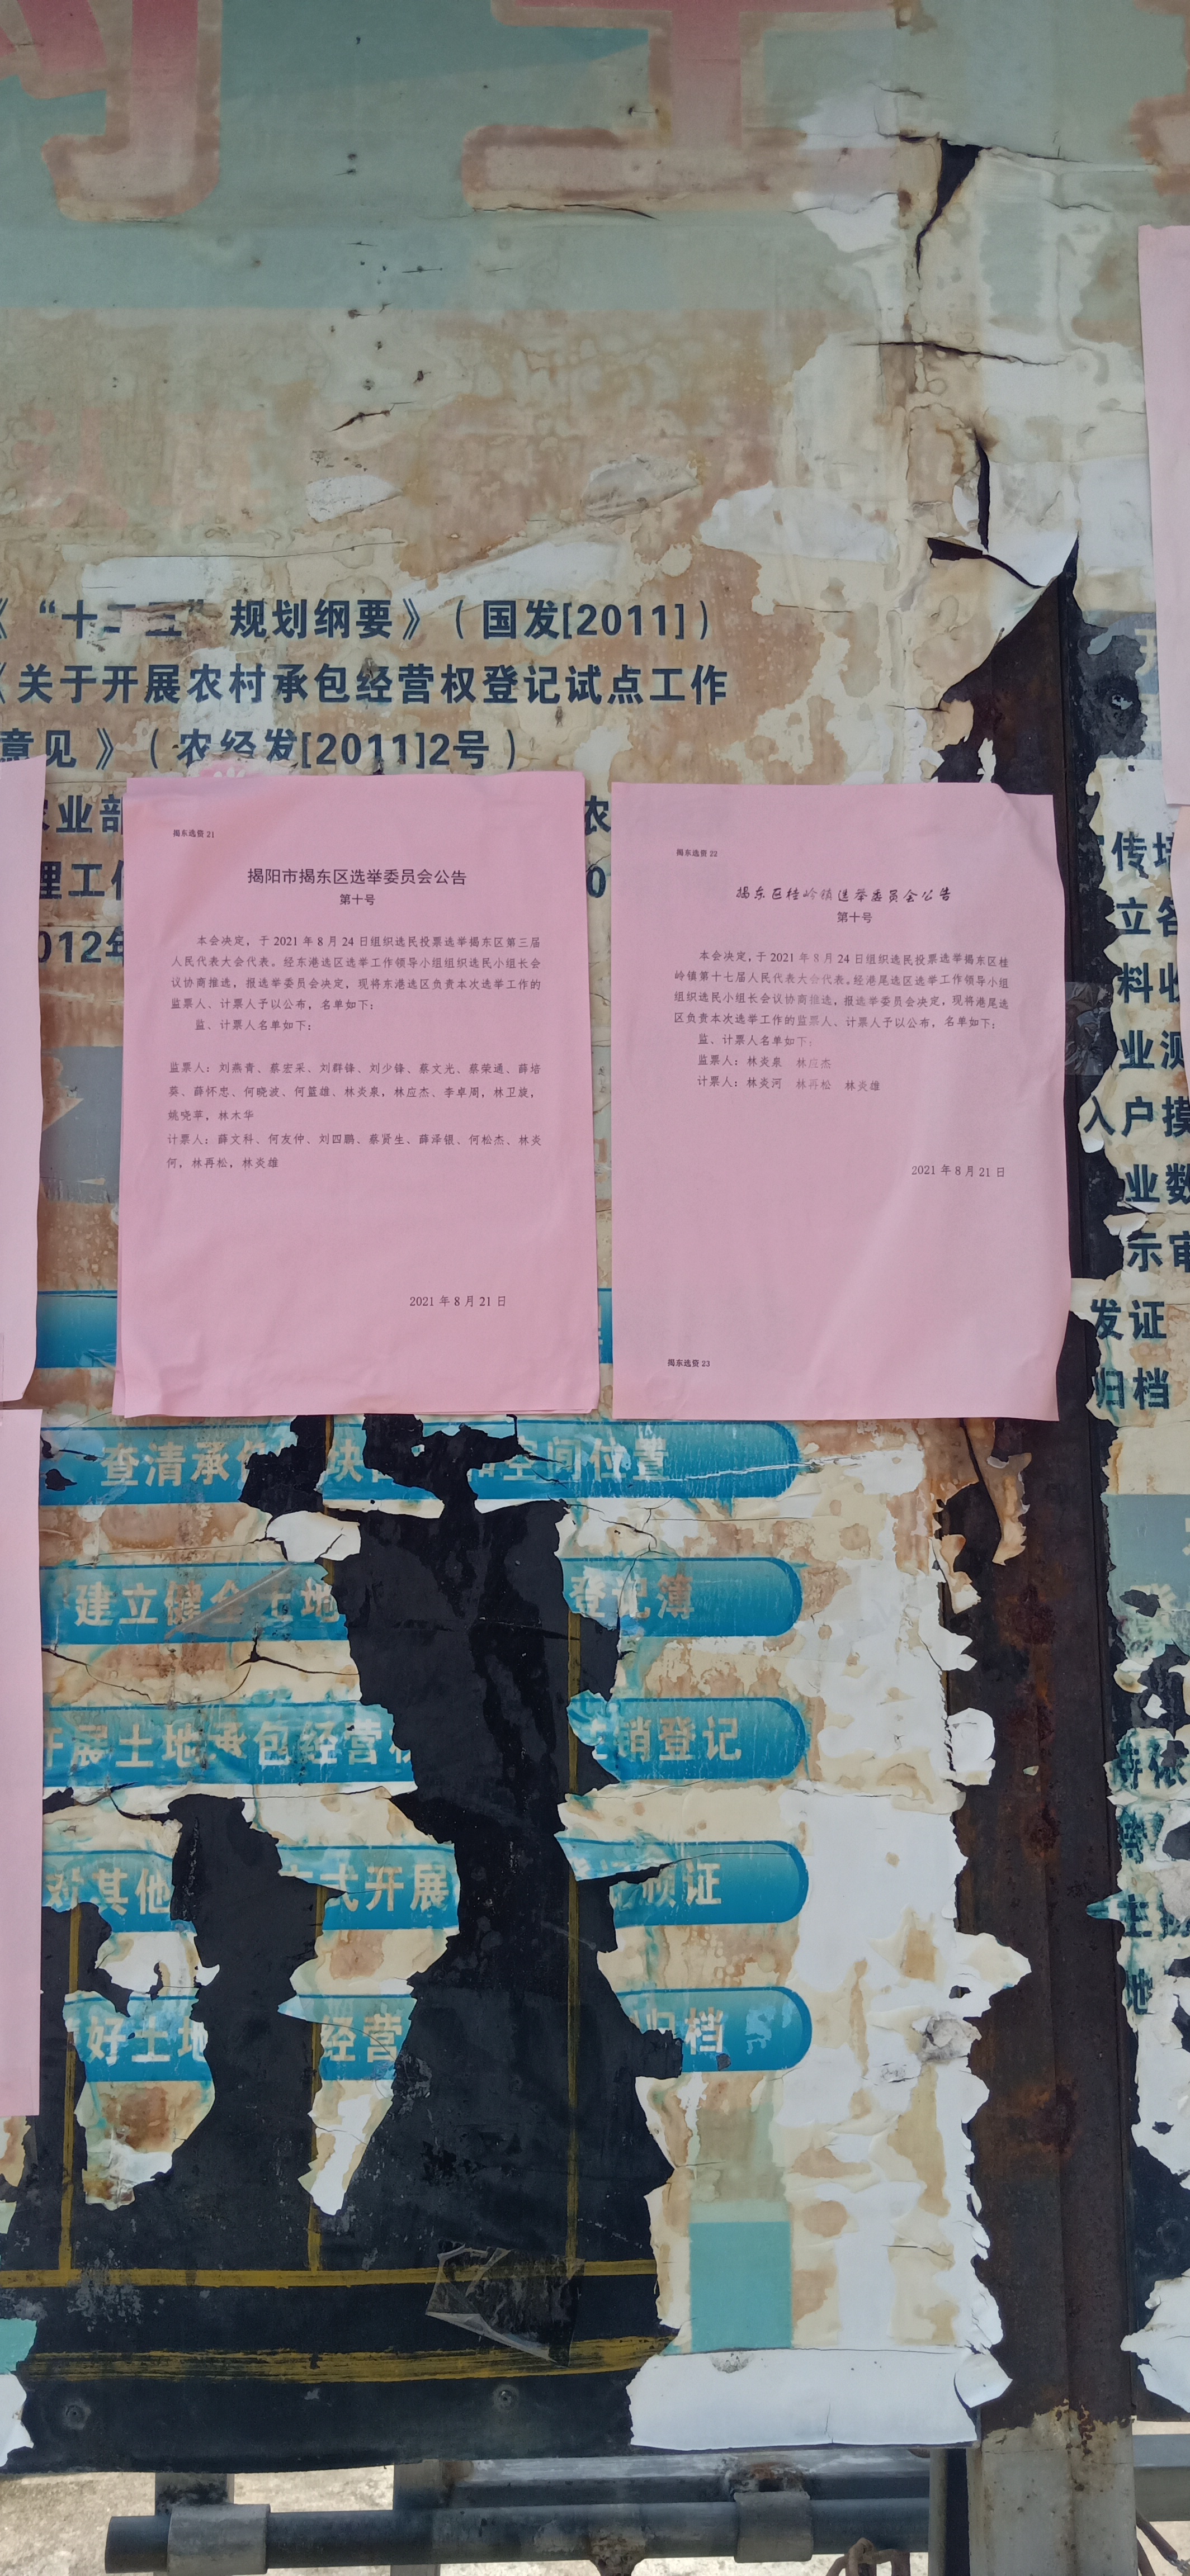 《“十二五”规划纲要》（国发[2011]）
《关于开展农村承包经营权登记试点工作
意见》（农经发[2011]2号）
农业部
农
理工作
012年
揭东选资 21
揭阳市揭东区选举委员会公告
第十号
本会决定，于 2021 年 8 月 24 日组织选民投票选举揭东区第三届
人民代表大会代表。经东港选区选举工作领导小组组织选民小组长会
议协商推选，报选举委员会决定，现将东港选区负责本次选举工作的
监票人、计票人予以公布，名单如下：
监、计票人名单如下：
监票人：刘燕青、蔡宏采、刘群锋、刘少锋、蔡文光、蔡荣通、薛培
葵、薛怀忠、何晓波、何篮雄、林炎泉，林应杰、李卓周，林卫旋，
姚晓苹，林木华
计票人：薛文科、何友仲、刘四鹏、蔡贤生、薛泽银、何松杰、林炎
何，林再松，林炎雄
2021 年 8 月 21 日
揭东选资 22
揭东区桂岭镇选举委员会公告
第十号
本会决定，于 2021 年 8 月 24 日组织选民投票选举揭东区桂
岭镇第十七届人民代表大会代表。经港尾选区选举工作领导小组
组织选民小组长会议协商推选，报选举委员会决定，现将港尾选
区负责本次选举工作的监票人、计票人予以公布，名单如下：
监、计票人名单如下：
监票人：林炎泉 林应杰
计票人：林炎河 林再松 林炎雄
2021 年 8 月 21 日
揭东选资 23
查清承包 块 空间位置
建立健全土地 登记簿
开展土地承包经营权 注销登记
对其他 方式开展 颁证
好土地 经营 归档
传培
立各
料收
业测
入户摸
业数
示审
发证
归档